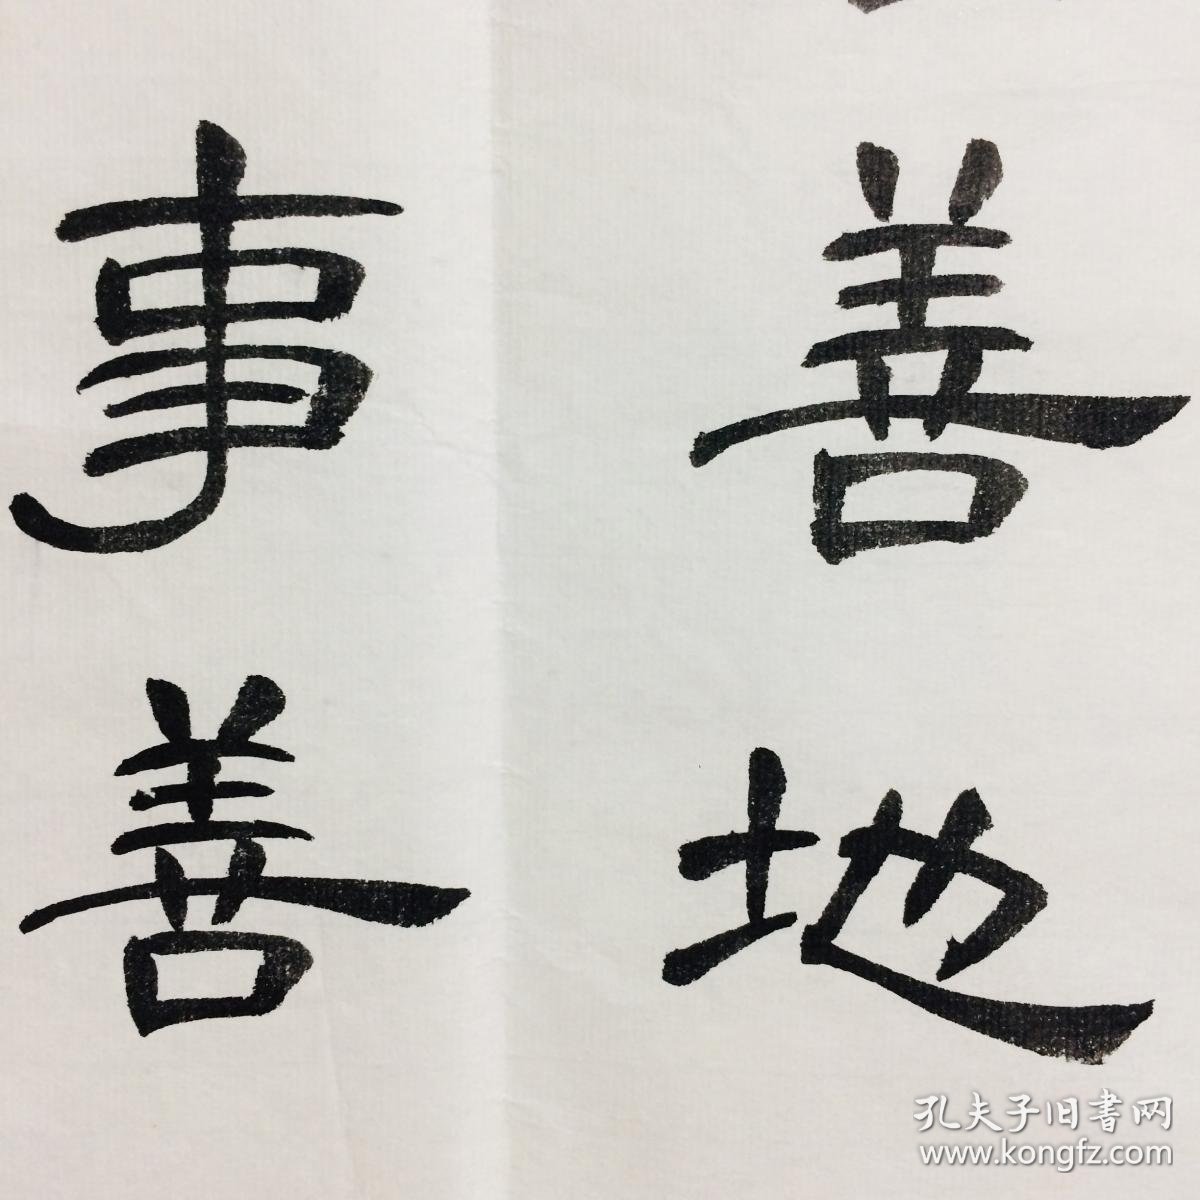 善地
事善
孔夫子旧書网
www.kongfz.com